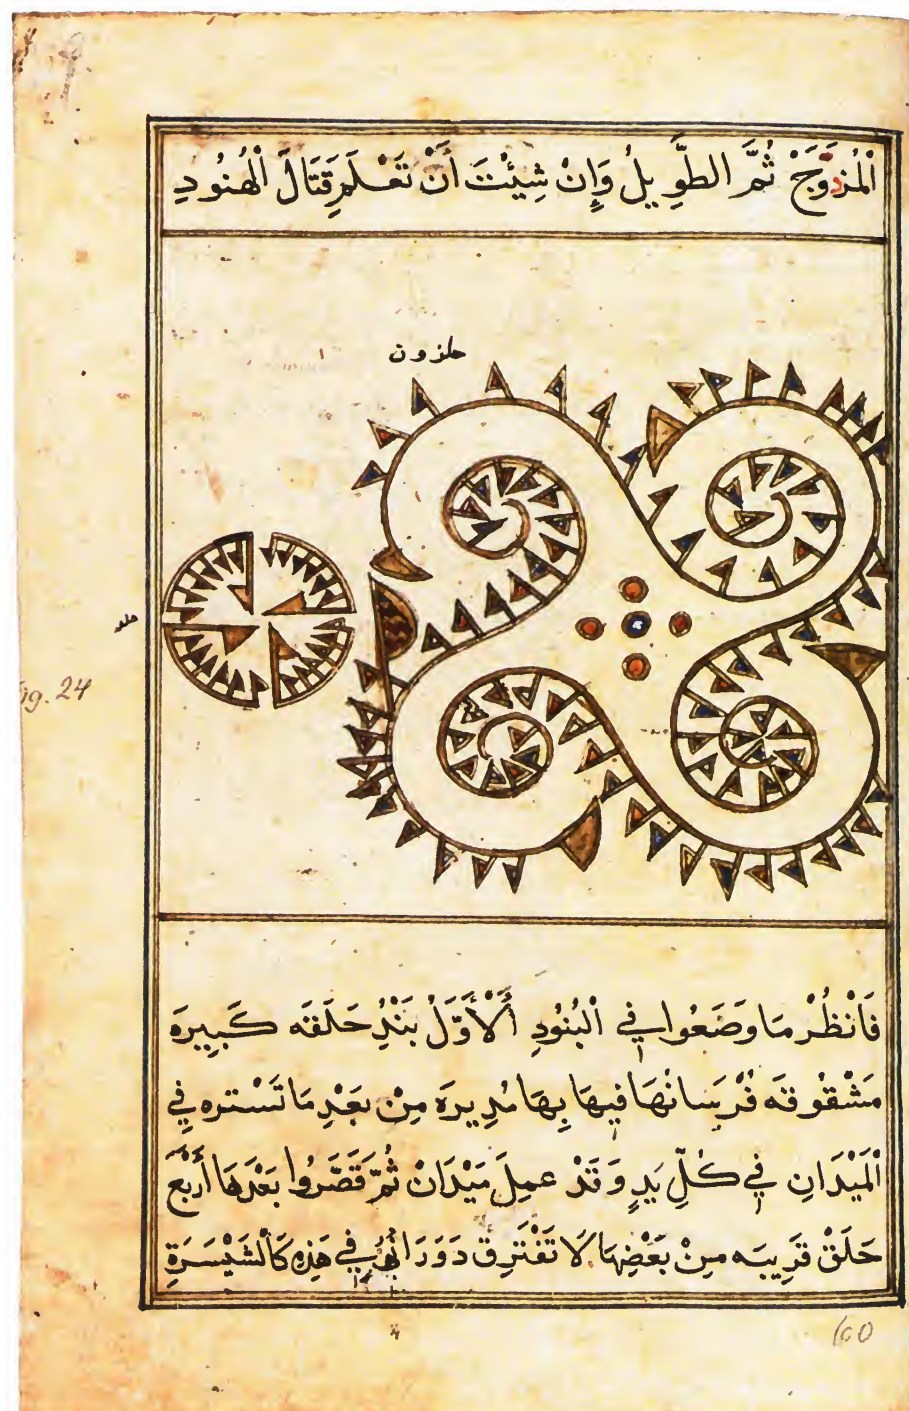 اَلْمُزدَوَجْ ثُمَّ الطَّوِيلُ وَإِنْ شِئْتَ أَنْ تَعْلَمَ قِتَالَ الْهُنُودِ
حلزون
Fig. 24
فَانْظُرْ مَا وَضَعُوا فِي الْبُنُودِ الْأَوَّلُ بَنْدُ حَلَقَه كَبِيرَه
مَشْقُوقَه فُرْسَانُهَا فِيهَا بِهَا مُدِيرَه مِنْ بَعْدِ مَا تَسْتره فِي
الْمَيْدَانِ فِي كُلِّ يَدٍ وَقَدْ عمِلَ مَيْدَانْ ثُمَّ قَصَّرُوا بَعْدَهَا أَرْبَع
حَلَقْ قَرِيبَه مِنْ بَعْضِهَا لَا تَفْتَرِق دَوَرَانُهُ فِي هَذِه
60